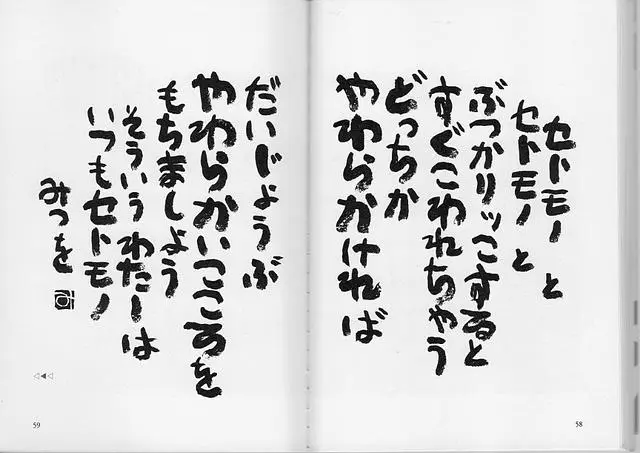 セトモノと
セトモノと
ぶつかりッこすると
すぐこわれちゃう
どっちか
やわらかければ
だいじょうぶ
やわらかいこころを
もちましよう
そういうわたしは
いつもセトモノ
みつを
58
59